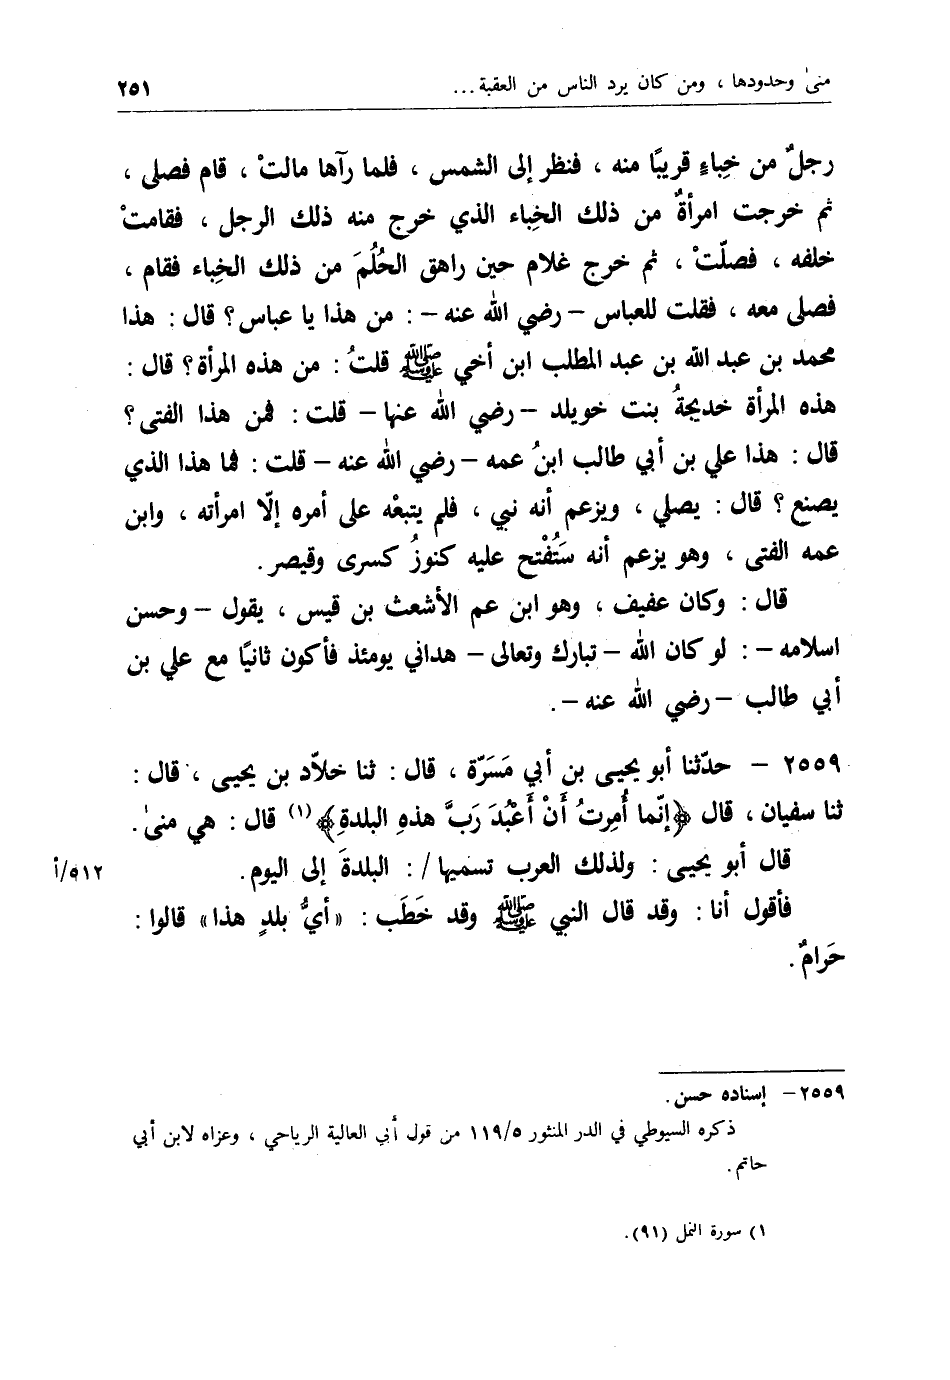 منىٰ وحدودها ، ومن كان يرد الناس من العقبة ... ٢٥١
رجلٌ من خِباءٍ قريبًا منه ، فنظر إلى الشمس ، فلما رآها مالتْ ، قام فصلى ،
ثم خرجت امرأةٌ من ذلك الخِباء الذي خرج منه ذلك الرجل ، فقامتْ
خلفه ، فصلّتْ ، ثم خرج غلام حين راهق الحُلُمَ من ذلك الخِباء فقام ،
فصلى معه ، فقلت للعباس – رضي الله عنه – : من هذا يا عباس؟ قال : هذا
محمد بن عبد الله بن عبد المطلب ابن أخي ﷺ قلتُ : من هذه المرأة؟ قال :
هذه المرأة خديجةُ بنت خويلد – رضي الله عنها – قلت : فمن هذا الفتى؟
قال : هذا علي بن أبي طالب ابنُ عمه – رضي الله عنه – قلت : فما هذا الذي
يصنع؟ قال : يصلي ، ويزعم أنه نبي ، فلم يتبعْه على أمره إلّا امرأته ، وابن
عمه الفتى ، وهو يزعم أنه سَتُفْتح عليه كنوزُ كسرى وقيصر .
قال : وكان عفيف ، وهو ابن عم الأشعث بن قيس ، يقول – وحسن
اسلامه – : لو كان الله – تبارك وتعالى – هداني يومئذ فأكون ثانيًا مع علي بن
أبي طالب – رضي الله عنه – .
٢٥٥٩ – حدّثنا أبو يحيى بن أبي مَسَرّة ، قال : ثنا خلاّد بن يحيى ، قال :
ثنا سفيان ، قال ﴿إنّما أُمِرتُ أَنْ أَعْبُدَ رَبَّ هذهِ البلدةِ﴾(١) قال : هي منىٰ .
قال أبو يحيى : ولذلك العرب تسميها / : البلدةَ إلى اليوم . ٥١٢/أ
فأقول أنا : وقد قال النبي ﷺ وقد خَطَب : «أيُّ بلدٍ هذا» قالوا :
حَرامٌ .
٢٥٥٩ – إسناده حسن .
ذكره السيوطي في الدر المنثور ١١٩/٥ من قول أبي العالية الرياحي ، وعزاه لابن أبي
حاتم .
١) سورة النمل (٩١) .